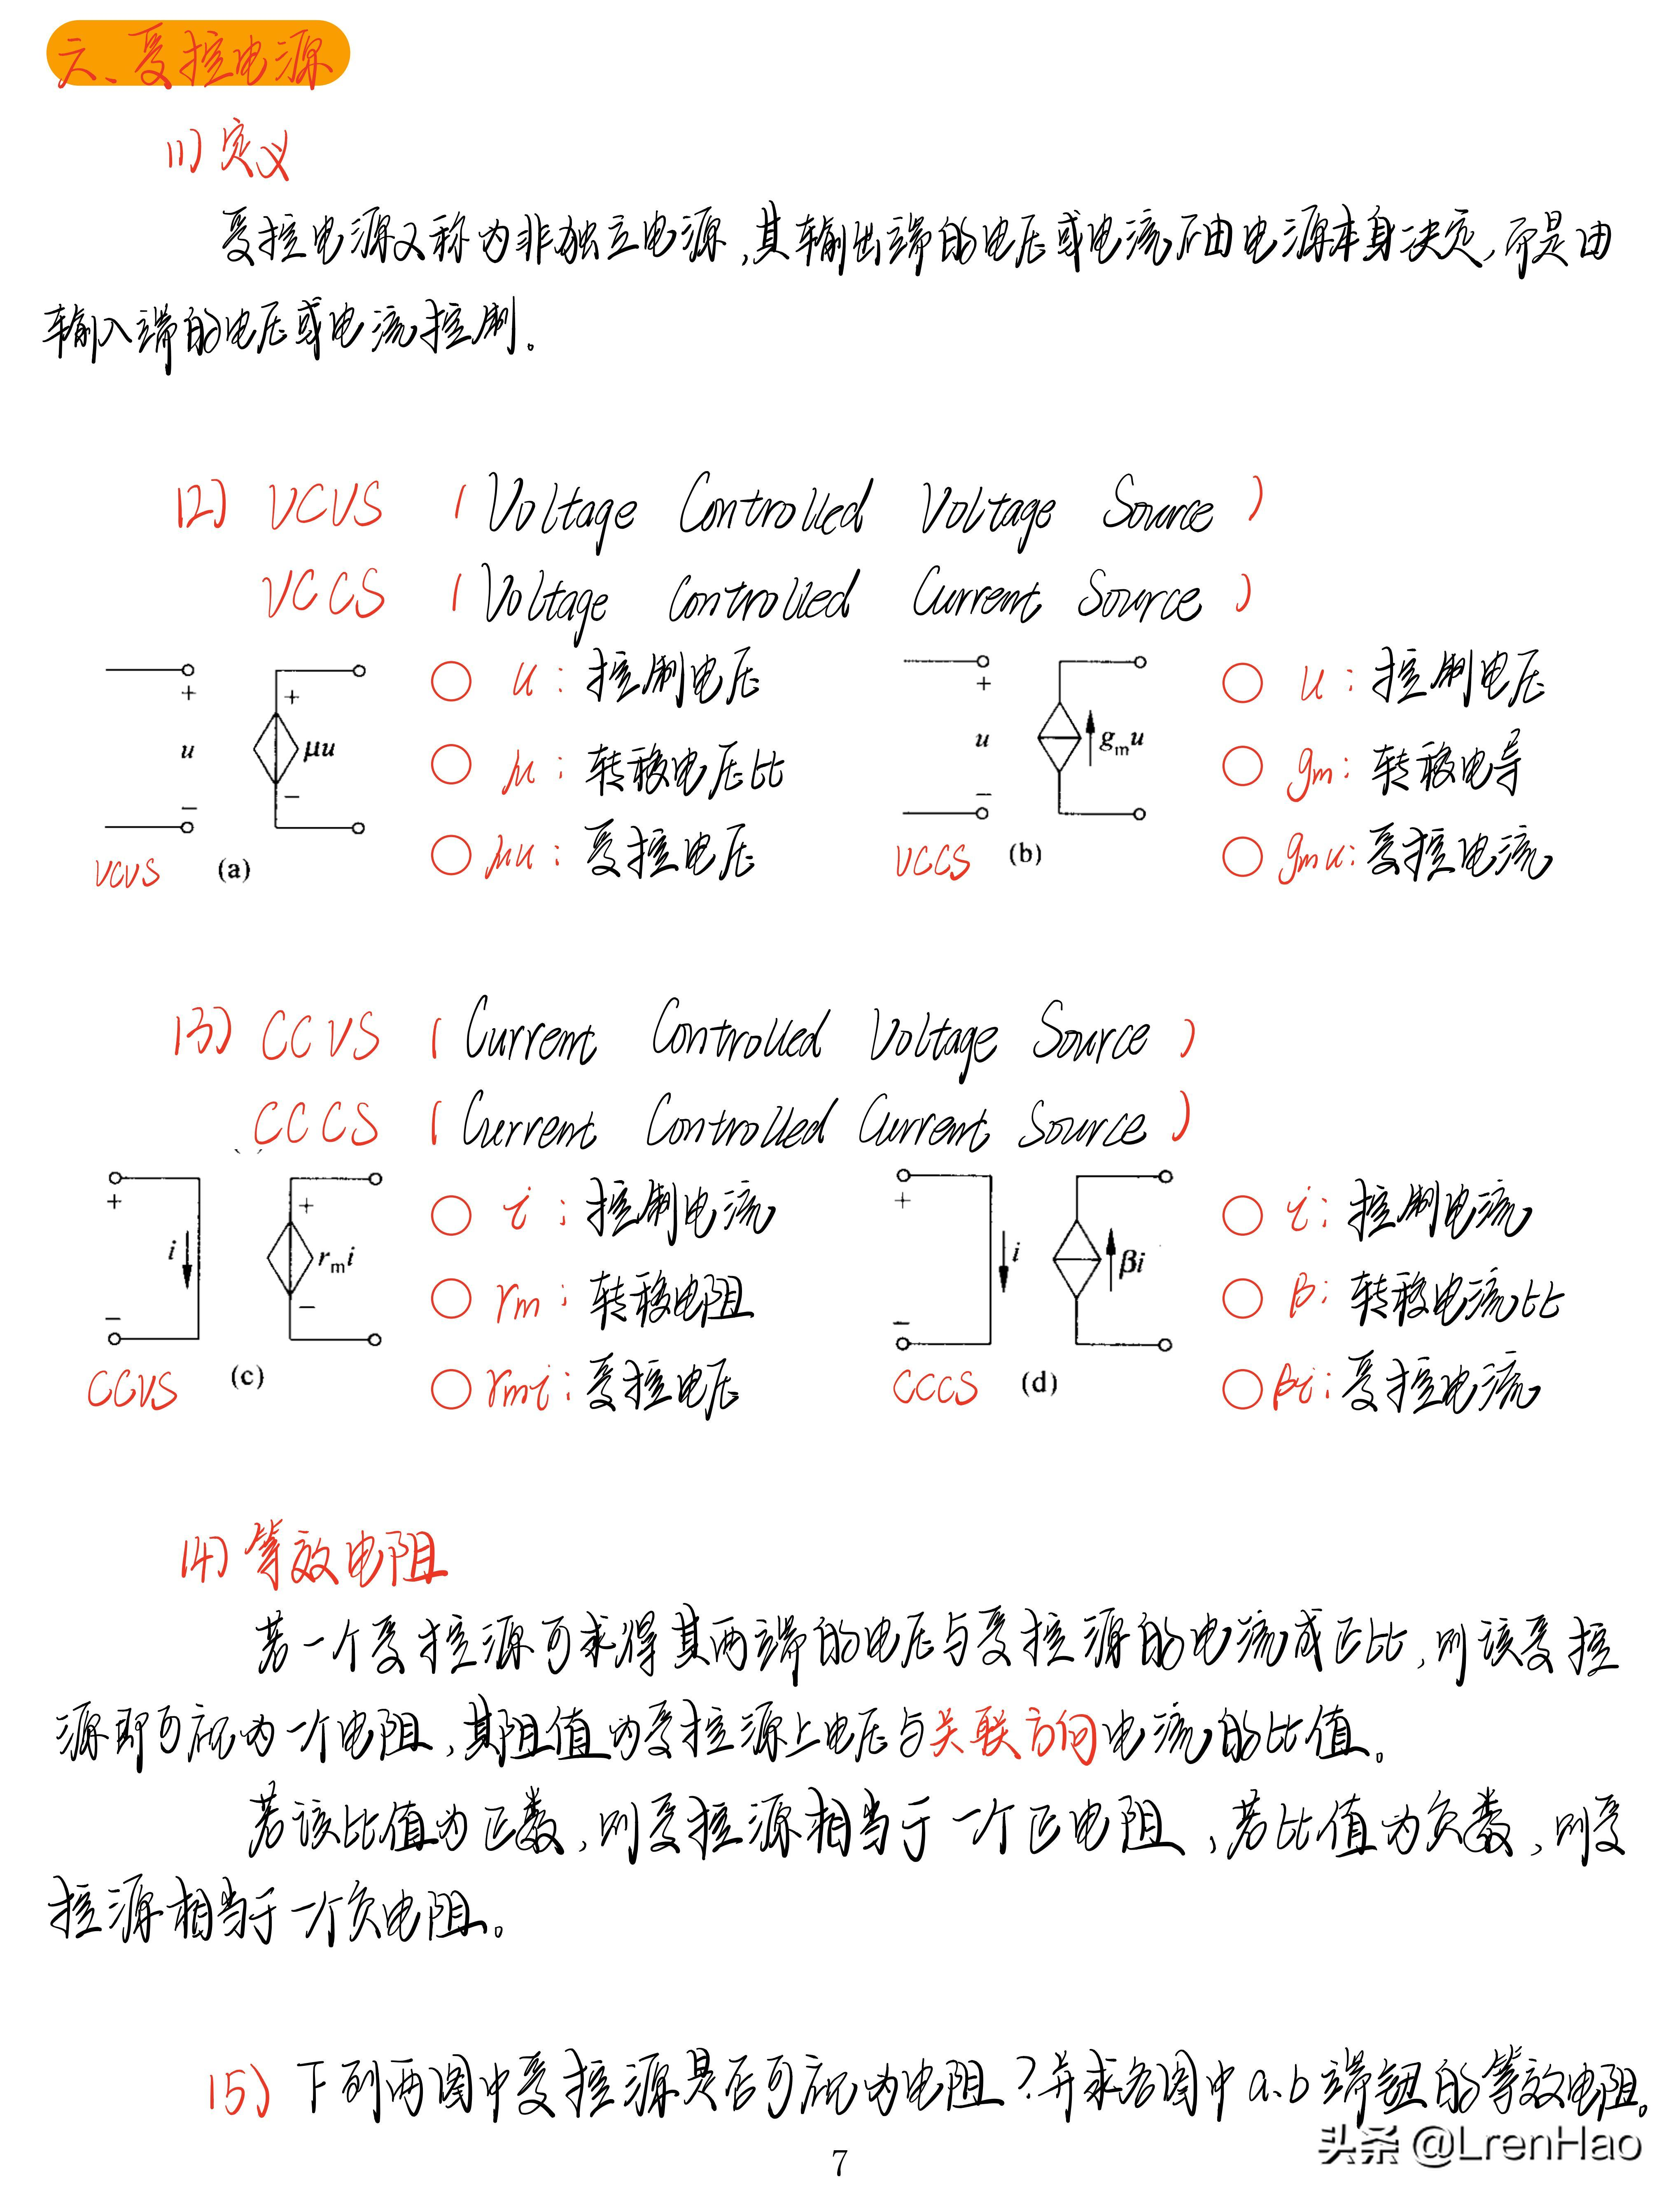 六、受控电源
(1) 定义
受控电源又称为非独立电源,其输出端的电压或电流不由电源本身决定,而是由
输入端的电压或电流控制。
(2) VCVS (Voltage Controlled Voltage Source)
VCCS (Voltage Controlled Current Source)
+ u −
+ μu −
VCVS (a)
○ u:控制电压
○ μ:转移电压比
○ μu:受控电压
+ u −
gmu
VCCS (b)
○ u:控制电压
○ gm:转移电导
○ gmu:受控电流
(3) CCVS (Current Controlled Voltage Source)
CCCS (Current Controlled Current Source)
+ i −
+ rmi −
CCVS (c)
○ i:控制电流
○ rm:转移电阻
○ rmi:受控电压
+ i −
βi
CCCS (d)
○ i:控制电流
○ β:转移电流比
○ βi:受控电流
(4) 等效电阻
若一个受控源可求得其两端的电压与受控源的电流成正比,则该受控
源即可视为一个电阻,其阻值为受控源上电压与关联方向电流的比值。
若该比值为正数,则受控源相当于一个正电阻,若比值为负数,则受
控源相当于一个负电阻。
(5) 下列两图中受控源是否可视为电阻?并求各图中a、b端钮的等效电阻。
头条 @LrenHao
7